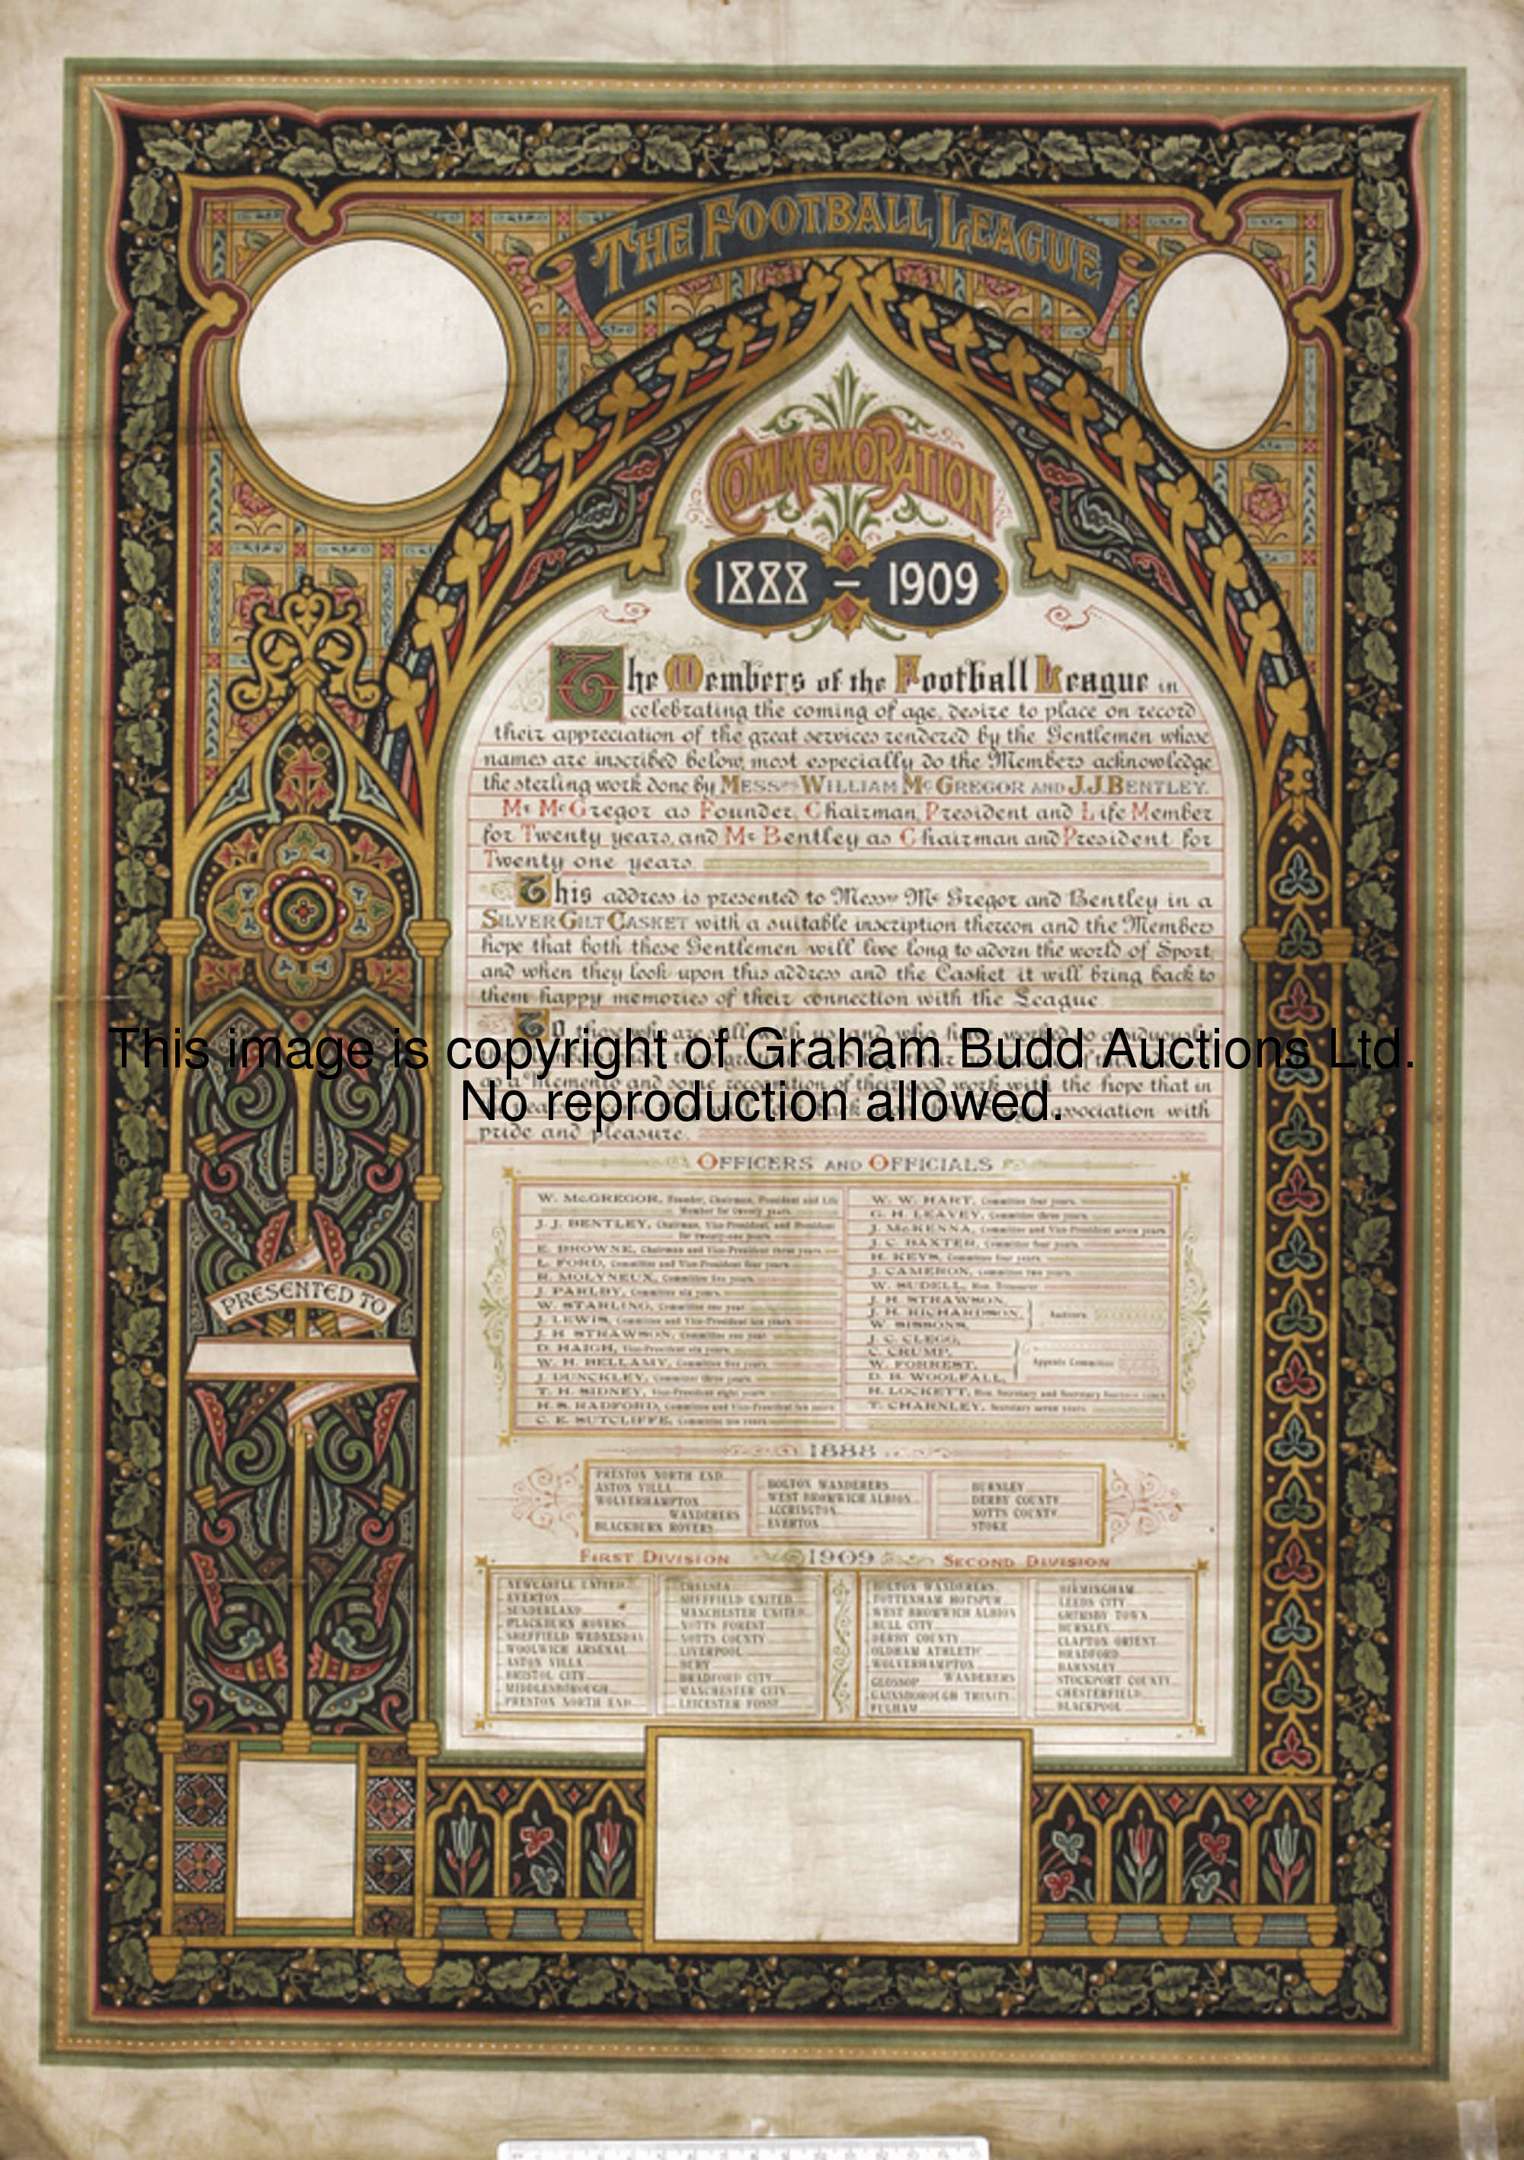 THE FOOTBALL LEAGUE
COMMEMORATION
1888 – 1909
The Members of the Football League in
celebrating the coming of age, desire to place on record
their appreciation of the great services rendered by the Gentlemen whose
names are inscribed below, most especially do the Members acknowledge
the sterling work done by MESSRS WILLIAM McGREGOR AND J.J. BENTLEY.
Mr McGregor as Founder, Chairman, President and Life Member
for Twenty years, and Mr Bentley as Chairman and President for
Twenty one years.
This address is presented to Messrs McGregor and Bentley in a
SILVER GILT CASKET with a suitable inscription thereon and the Members
hope that both these Gentlemen will live long to adorn the world of Sport,
and when they look upon this address and the Casket it will bring back to
them happy memories of their connection with the League.
To those who are still with us and who have worked so assiduously
This image is copyright of Graham Budd Auctions Ltd.
as a Memento and some recognition of their good work with the hope that in
No reproduction allowed.
association with
pride and pleasure.
PRESENTED TO
OFFICERS AND OFFICIALS
W. McGREGOR, Founder, Chairman, President and Life
Member for twenty years.
J. J. BENTLEY, Chairman, Vice-President, and President
for twenty-one years.
E. BROWNE, Chairman and Vice-President three years
L. FORD, Committee and Vice-President four years
R. MOLYNEUX, Committee five years.
J. PARLBY, Committee six years.
W. STARLING, Committee one year
J. LEWIS, Committee and Vice-President ten years.
J. H STRAWSON, Committee one year
D. HAIGH, Vice-President six years.
W. H. BELLAMY, Committee five years
J. DUNCKLEY, Committee three years.
T. H. SIDNEY, Vice-President eight years
H. S. RADFORD, Committee and Vice-President ten years
C. E. SUTCLIFFE, Committee ten years
W. W. HART, Committee four years.
G. H. LEAVEY, Committee three years.
J. McKENNA, Committee and Vice-President seven years
J. C. BAXTER, Committee four years.
H. KEYS, Committee four years.
J. CAMERON, Committee two years.
W. SUDELL, Hon. Treasurer
J. H. STRAWSON,
J. H. RICHARDSON,
W. SISSONS,
Auditors
J. C. CLEGG,
C. CRUMP,
W. FORREST,
D. B. WOOLFALL,
Appeals Committee
H. LOCKETT, Hon. Secretary and Secretary fourteen years
T. CHARNLEY, Secretary seven years.
1888
PRESTON NORTH END
ASTON VILLA
WOLVERHAMPTON
WANDERERS
BLACKBURN ROVERS
BOLTON WANDERERS
WEST BROMWICH ALBION
ACCRINGTON
EVERTON
BURNLEY
DERBY COUNTY
NOTTS COUNTY
STOKE
FIRST DIVISION 1909 SECOND DIVISION
NEWCASTLE UNITED
EVERTON
SUNDERLAND
BLACKBURN ROVERS
SHEFFIELD WEDNESDAY
WOOLWICH ARSENAL
ASTON VILLA
BRISTOL CITY
MIDDLESBOROUGH
PRESTON NORTH END
CHELSEA
SHEFFIELD UNITED
MANCHESTER UNITED
NOTTS FOREST
NOTTS COUNTY
LIVERPOOL
BURY
BRADFORD CITY
MANCHESTER CITY
LEICESTER FOSSE
BOLTON WANDERERS
TOTTENHAM HOTSPUR
WEST BROMWICH ALBION
HULL CITY
DERBY COUNTY
OLDHAM ATHLETIC
WOLVERHAMPTON
WANDERERS
GLOSSOP
GAINSBOROUGH TRINITY
FULHAM
BIRMINGHAM
LEEDS CITY
GRIMSBY TOWN
BURNLEY
CLAPTON ORIENT
BRADFORD
BARNSLEY
STOCKPORT COUNTY
CHESTERFIELD
BLACKPOOL